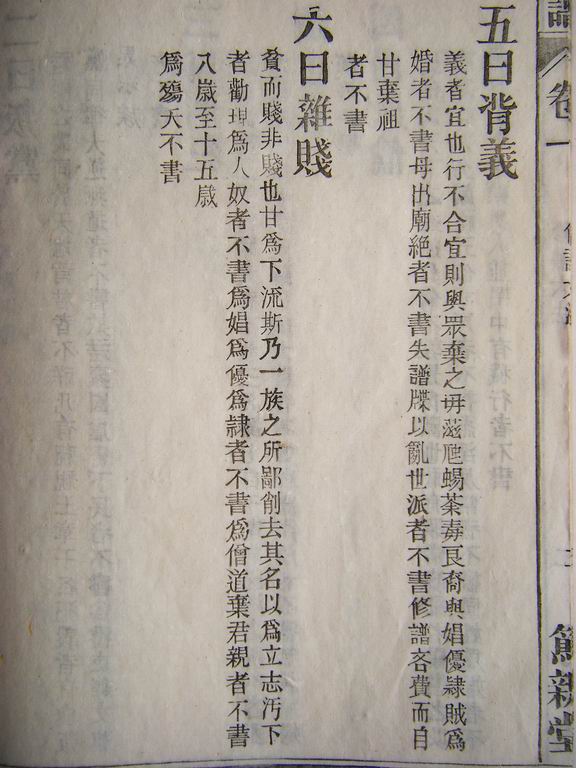 卷一
五曰背義
義者宜也行不合宜則與眾棄之毋滋虺蜴荼毒良裔與娼優隸賊爲
婚者不書母出廟絕者不書失譜牒以亂世派者不書修譜吝費而自
甘棄祖
者不書
六曰雜賤
貧而賤非賤也甘爲下流斯乃一族之所鄙削去其名以爲立志汚下
者勸理爲人奴者不書爲娼爲優爲隸者不書爲僧道棄君親者不書
八歲至十五歲
爲殤夭不書
親堂